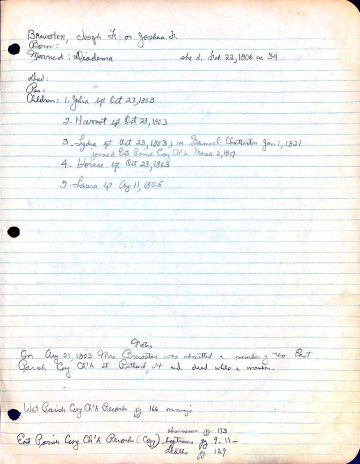 BREWSTER, Joseph F. or Joshua F.
Born:
Married: Diadema she d. Feb 22, 1806 ae 34
Died:
Res:
Children: 1. Julia bpt Oct 23, 1803
2. Harriot bpt Oct 23, 1803
3. Lydia bpt Oct 23, 1803; m Samuel Chatterton Jan 1, 1821
joined East Parish Cong Ch'h March 2, 1817
4. Horice bpt Oct 23, 1803
5. Laura bpt Aug 11, 1805
Notes
On Aug 21, 1803 Mrs. Brewster was admitted a member of the East
Parish Cong Ch'h at Rutland, Vt and died while a member.
West Parish Cong Ch'h Records pg 166 marriage
pg 173
East Parish Cong Ch'h Records (Copy) baptisms pg 9-11-
deaths pg 129